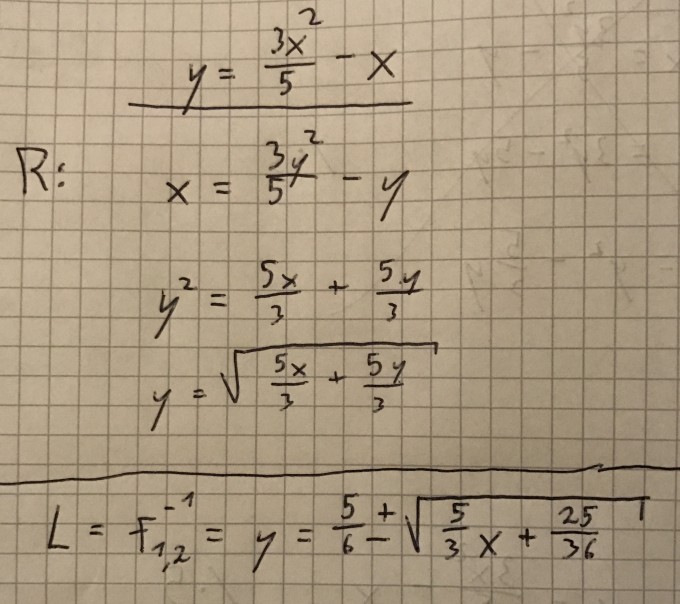 y = 3x²/5 - x
R: x = 3y²/5 - y
y² = 5x/3 + 5y/3
y = √(5x/3 + 5y/3)
L = F₁,₂⁻¹ = y = 5/6 ± √(5/3 x + 25/36)